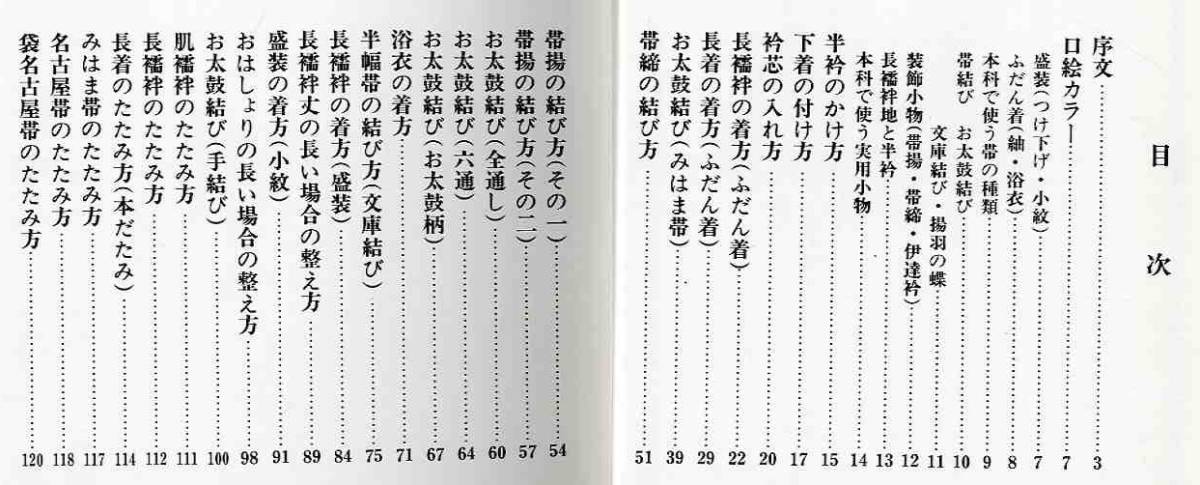 目次
序文 3
口絵カラー 7
盛装(つけ下げ・小紋) 7
ふだん着(紬・浴衣) 8
本科で使う帯の種類 9
帯結び お太鼓結び 10
文庫結び・揚羽の蝶 11
装飾小物(帯揚・帯締・伊達衿) 12
長襦袢地と半衿 13
本科で使う実用小物 14
半衿のかけ方 15
下着の付け方 17
衿芯の入れ方 20
長襦袢の着方(ふだん着) 22
長着の着方(ふだん着) 29
お太鼓結び(みはま帯) 39
帯締の結び方 51
帯揚の結び方(その一) 54
帯揚の結び方(その二) 57
お太鼓結び(全通し) 60
お太鼓結び(六通) 64
お太鼓結び(お太鼓柄) 67
浴衣の着方 71
半幅帯の結び方(文庫結び) 75
長襦袢の着方(盛装) 84
長襦袢丈の長い場合の整え方 89
盛装の着方(小紋) 91
おはしょりの長い場合の整え方 98
お太鼓結び(手結び) 100
肌襦袢のたたみ方 111
長襦袢のたたみ方 112
長着のたたみ方(本だたみ) 114
みはま帯のたたみ方 117
名古屋帯のたたみ方 118
袋名古屋帯のたたみ方 120